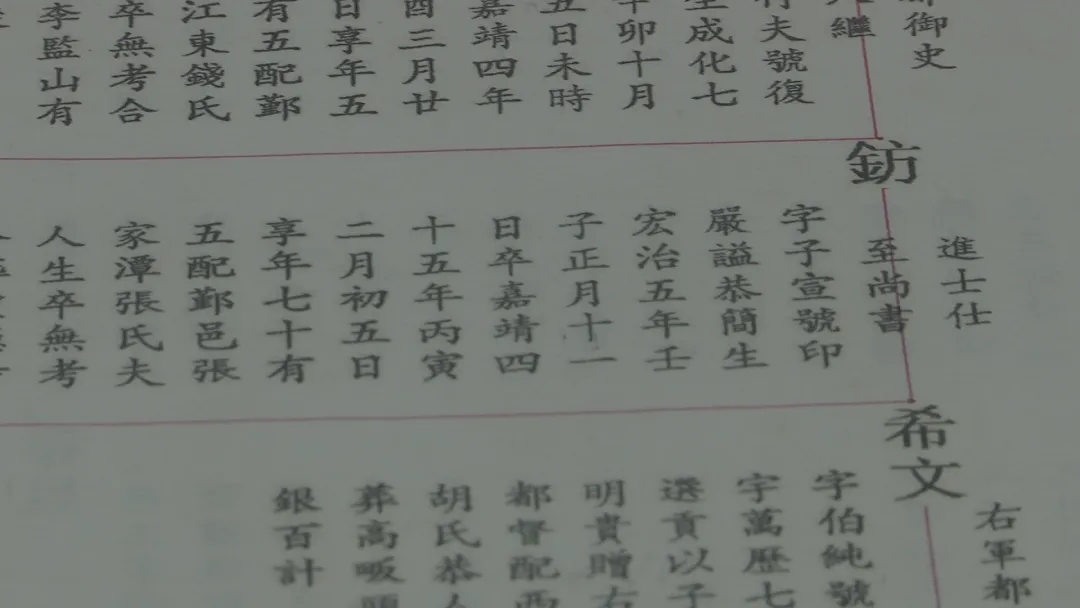 都御史
繼
竹夫號復
生成化七
辛卯十月
五日未時
嘉靖四年
酉三月廿
日享年五
有五配鄞
江東錢氏
卒無考合
李監山有
鈁
進士仕
至尚書
字子宣號印
嚴謚恭簡生
宏治五年壬
子正月十一
日卒嘉靖四
十五年丙寅
二月初五日
享年七十有
五配鄞邑張
家潭張氏夫
人生卒無考
希文
右軍都
字伯純號
字萬歷七
選貢以子
明貴贈右
都督配西
胡氏恭人
葬高㽘頭
銀百計